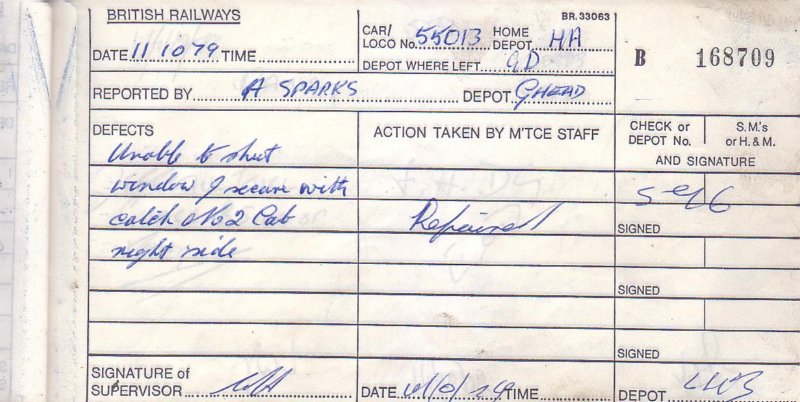 BRITISH RAILWAYS
BR.33063
DATE 11 10 79 TIME
CAR/
LOCO No. 55013 HOME
DEPOT HA
DEPOT WHERE LEFT GD
B 168709
REPORTED BY A SPARKS DEPOT GHEAD
DEFECTS
ACTION TAKEN BY M'TCE STAFF
CHECK or
DEPOT No.
S.M.'s
or H. & M.
AND SIGNATURE
Unable to shut
window & secure with
catch No2 Cab
right side
Repaired
SIGNED
SIGNED
SIGNED
SIGNATURE of
SUPERVISOR
DATE TIME
DEPOT